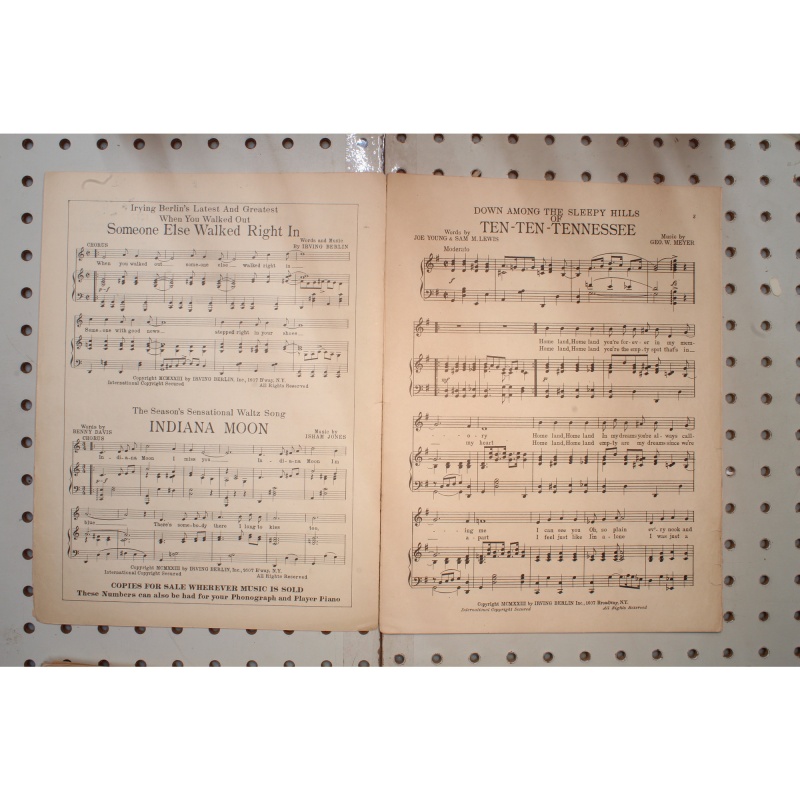 Irving Berlin's Latest And Greatest
When You Walked Out
Someone Else Walked Right In
CHORUS
Words and Music
By IRVING BERLIN
When you walked out some-one else walked right in
Some-one with good news stepped right in your shoes
Copyright MCMXXIII by IRVING BERLIN, Inc., 1607 B'way, N.Y.
International Copyright Secured All Rights Reserved
The Season's Sensational Waltz Song
INDIANA MOON
Words by
BENNY DAVIS
CHORUS
Music by
ISHAM JONES
In-di-a-na Moon I miss you In-di-a-na Moon I'm
blue There's some-bo-dy there I long to kiss too.
Copyright MCMXXIII by IRVING BERLIN, Inc., 1607 B'way, N.Y.
International Copyright Secured All Rights Reserved
COPIES FOR SALE WHEREVER MUSIC IS SOLD
These Numbers can also be had for your Phonograph and Player Piano
DOWN AMONG THE SLEEPY HILLS
OF
TEN-TEN-TENNESSEE
Words by
JOE YOUNG & SAM M. LEWIS
Music by
GEO. W. MEYER
Moderato
Home land, Home land you're for-ev-er in my mem-
Home land, Home land you're the emp-ty spot that's in
o-ry Home land, Home land In my dream you're al-ways call-
my heart Home land Home land emp-ty are my dreams since we're
ing me I can see you Oh, so plain ev'-ry nook and
a-part I feel just like I'm a-lone I was just a
Copyright MCMXXIII by IRVING BERLIN Inc., 1607 Broadway, N.Y.
International Copyright Secured All Rights Reserved